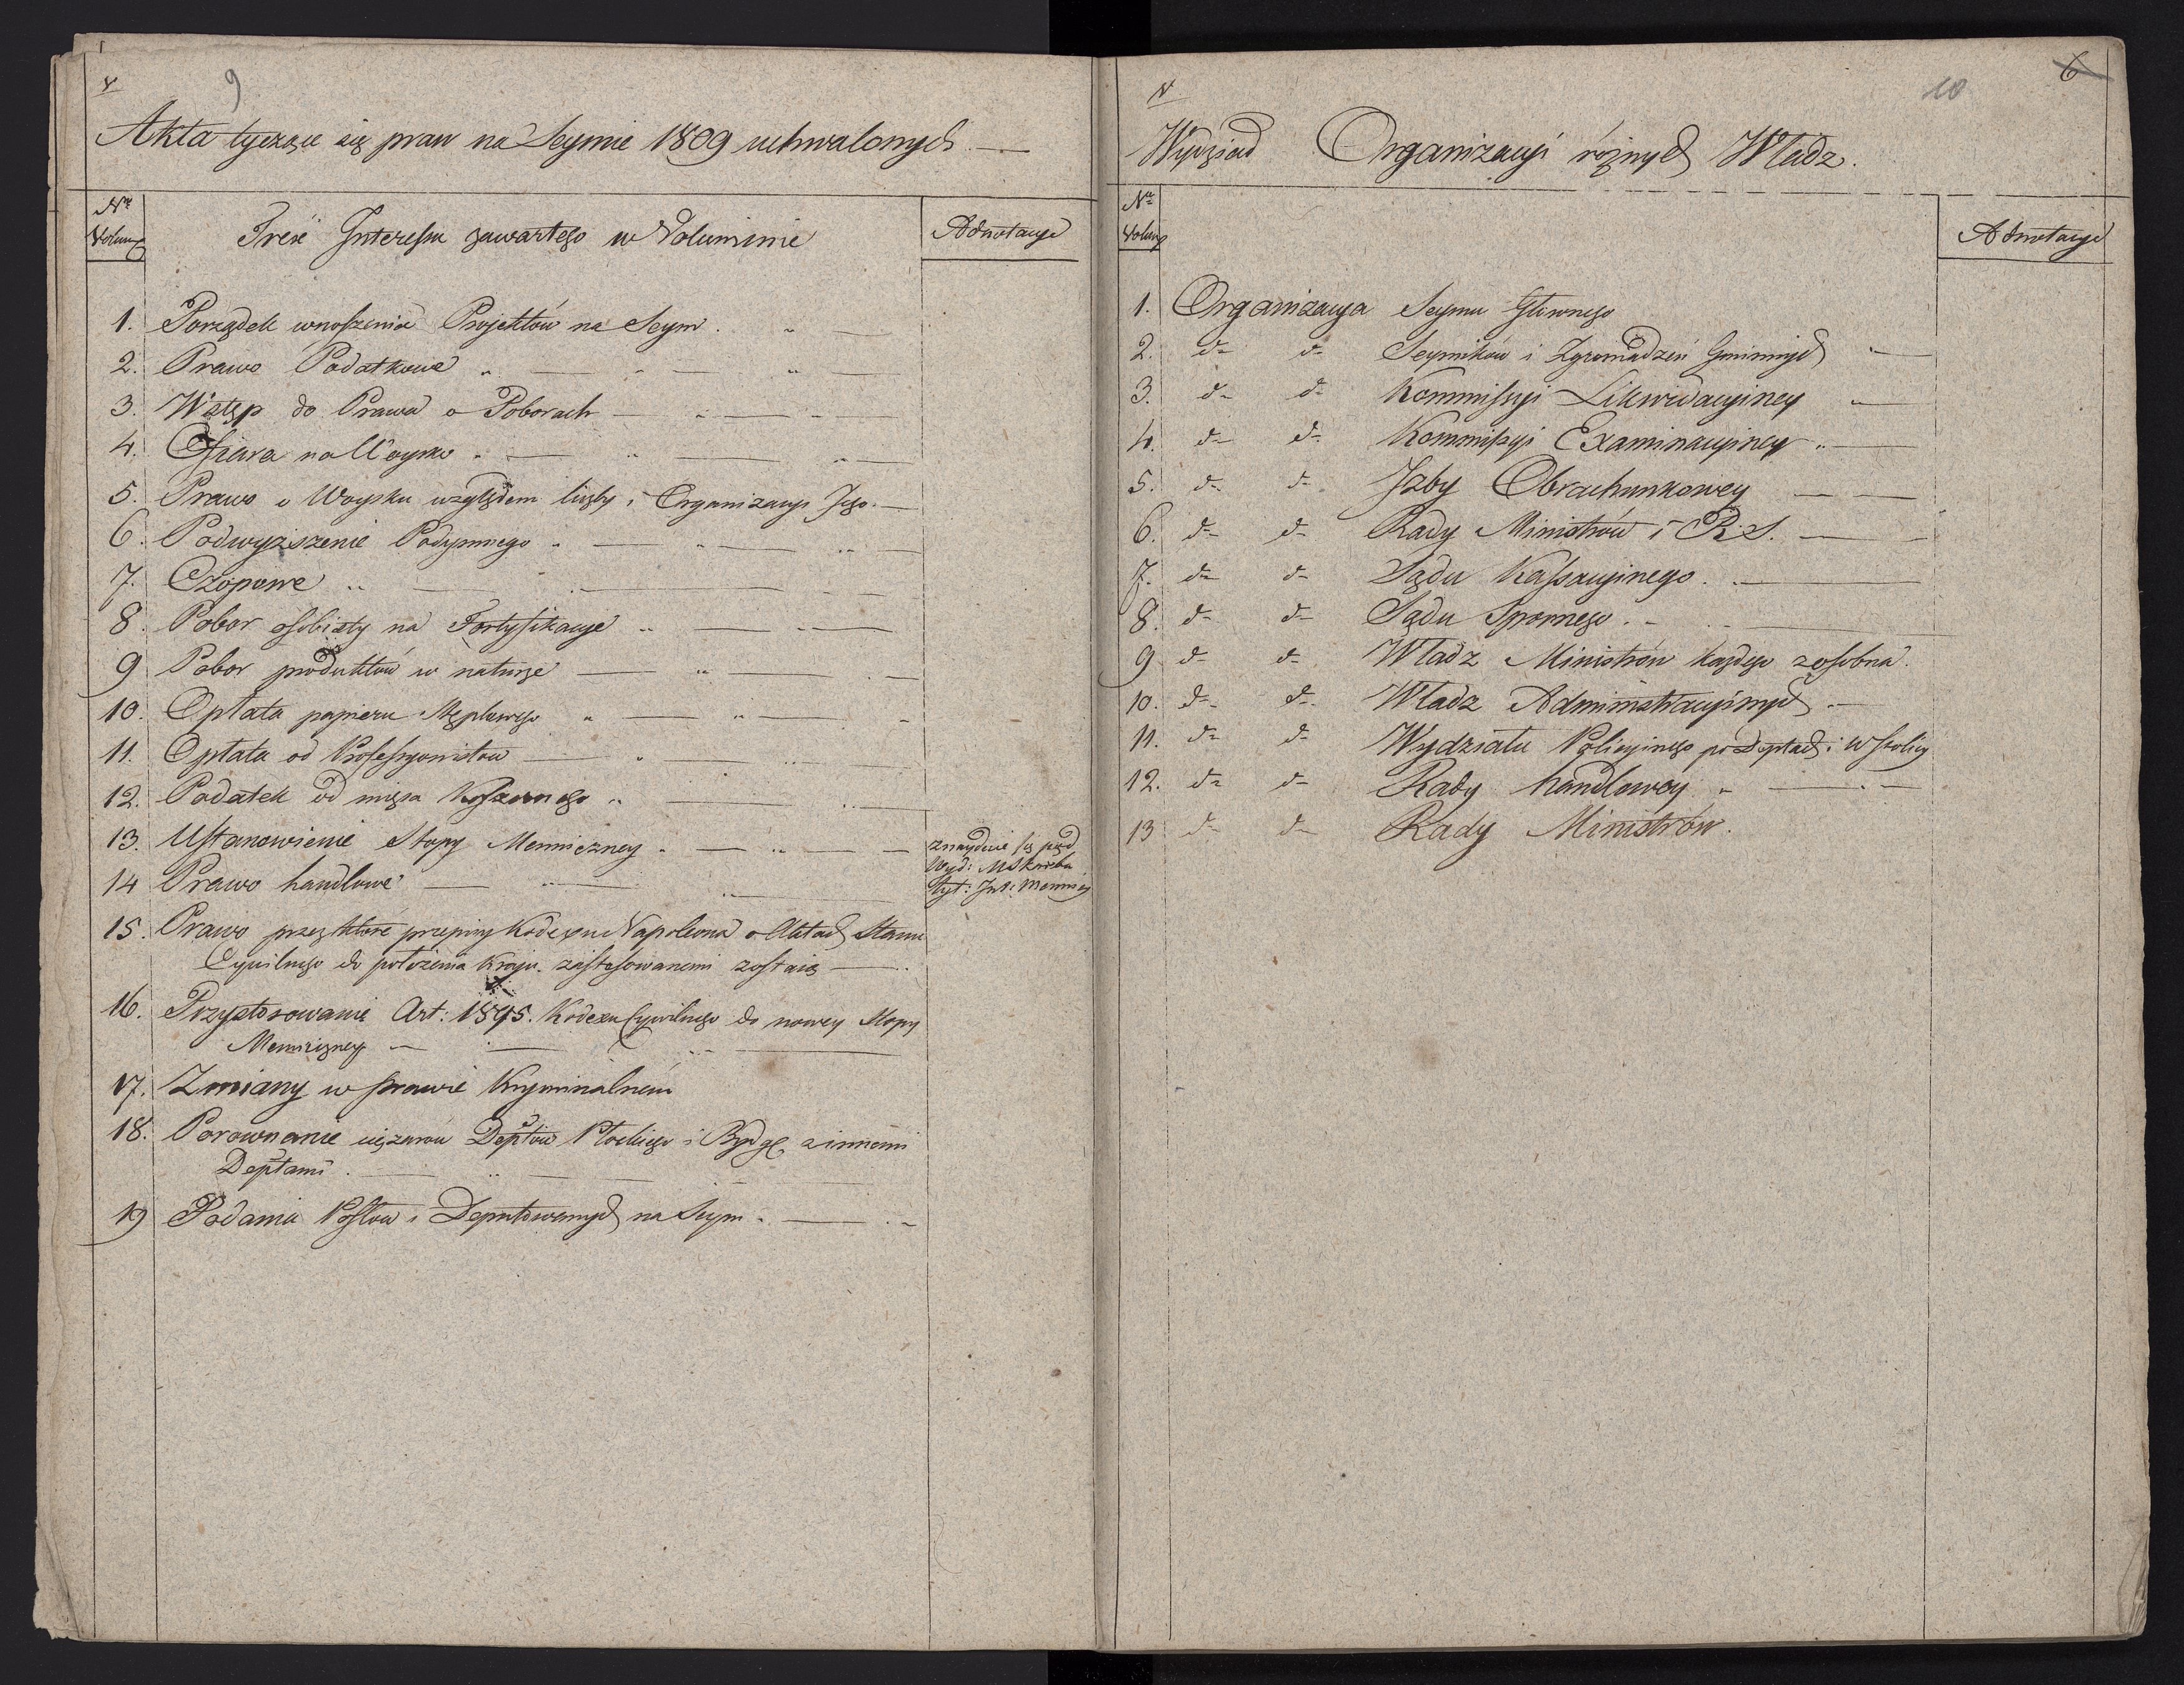 9
Akta tyczące się praw na Seymie 1809 uchwalonych
Nro Volum
Treść Interessu zawartego w Voluminie
Adnotacye
1. Porządek wnoszenia Projektów na Seym.
2. Prawo Podatkowe
3. Wstęp do Prawa o Poborach
4. Ofiara na Woysko
5. Prawo o Woysku względem liczby i Organizacyi Jego.
6. Podwyższenie Podymnego
7. Czopowe
8. Pobor osobisty na Fortyfikacye
9 Pobor produktów w naturze
10. Opłata papieru Stęplowego
11. Opłata od Professyonistow
12. Podatek od mięsa Koszernego
13. Ustanowienie Stopy Menniczney
znayduie się pod
Wyd: M Skarbu
tyt: Int: Mennicy
14 Prawo handlowe
15. Prawo przez które przepisy Kodexu Napoleona o Aktach Stanu
Cywilnego do położenia Kraju zastosowanemi zostaią
16. Przystosowanie Art: 1895. Kodexu Cywilnego do nowey Stopy
Menniczney
17. Zmiany w prawie Kryminalnem
18. Porownanie ciężarow Deptów Płockiego i Bydg. z innemi
Deptami.
19 Podania Posłow i Deputowanych na Seym.
10
6
Wydział Organizacyi różnych Władz.
Nro Volum
Adnotacye
1. Organizacya Seymu Głównego
2. do do Seymików i Zgromadzeń Gminnych
3. do do Kommissyi Likwidacyiney
4. do do Kommissyi Examinacyiney
5. do do Izby Obrachunkowey
6. do do Rady Ministrów i R.S.
7. do do Sądu Kassacyinego.
8. do do Sądu Spornego.
9 do do Władz Ministrów każdego zosobna.
10. do do Władz Administracyinych
11. do do Wydziału Policyinego po Deptach i w stolicy
12. do do Rady handlowey
13 do do Rady Ministrów.